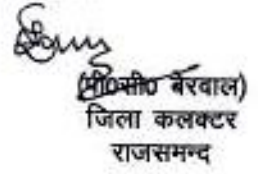 (पी०सी० बेरवाल)
जिला कलक्टर
राजसमन्द